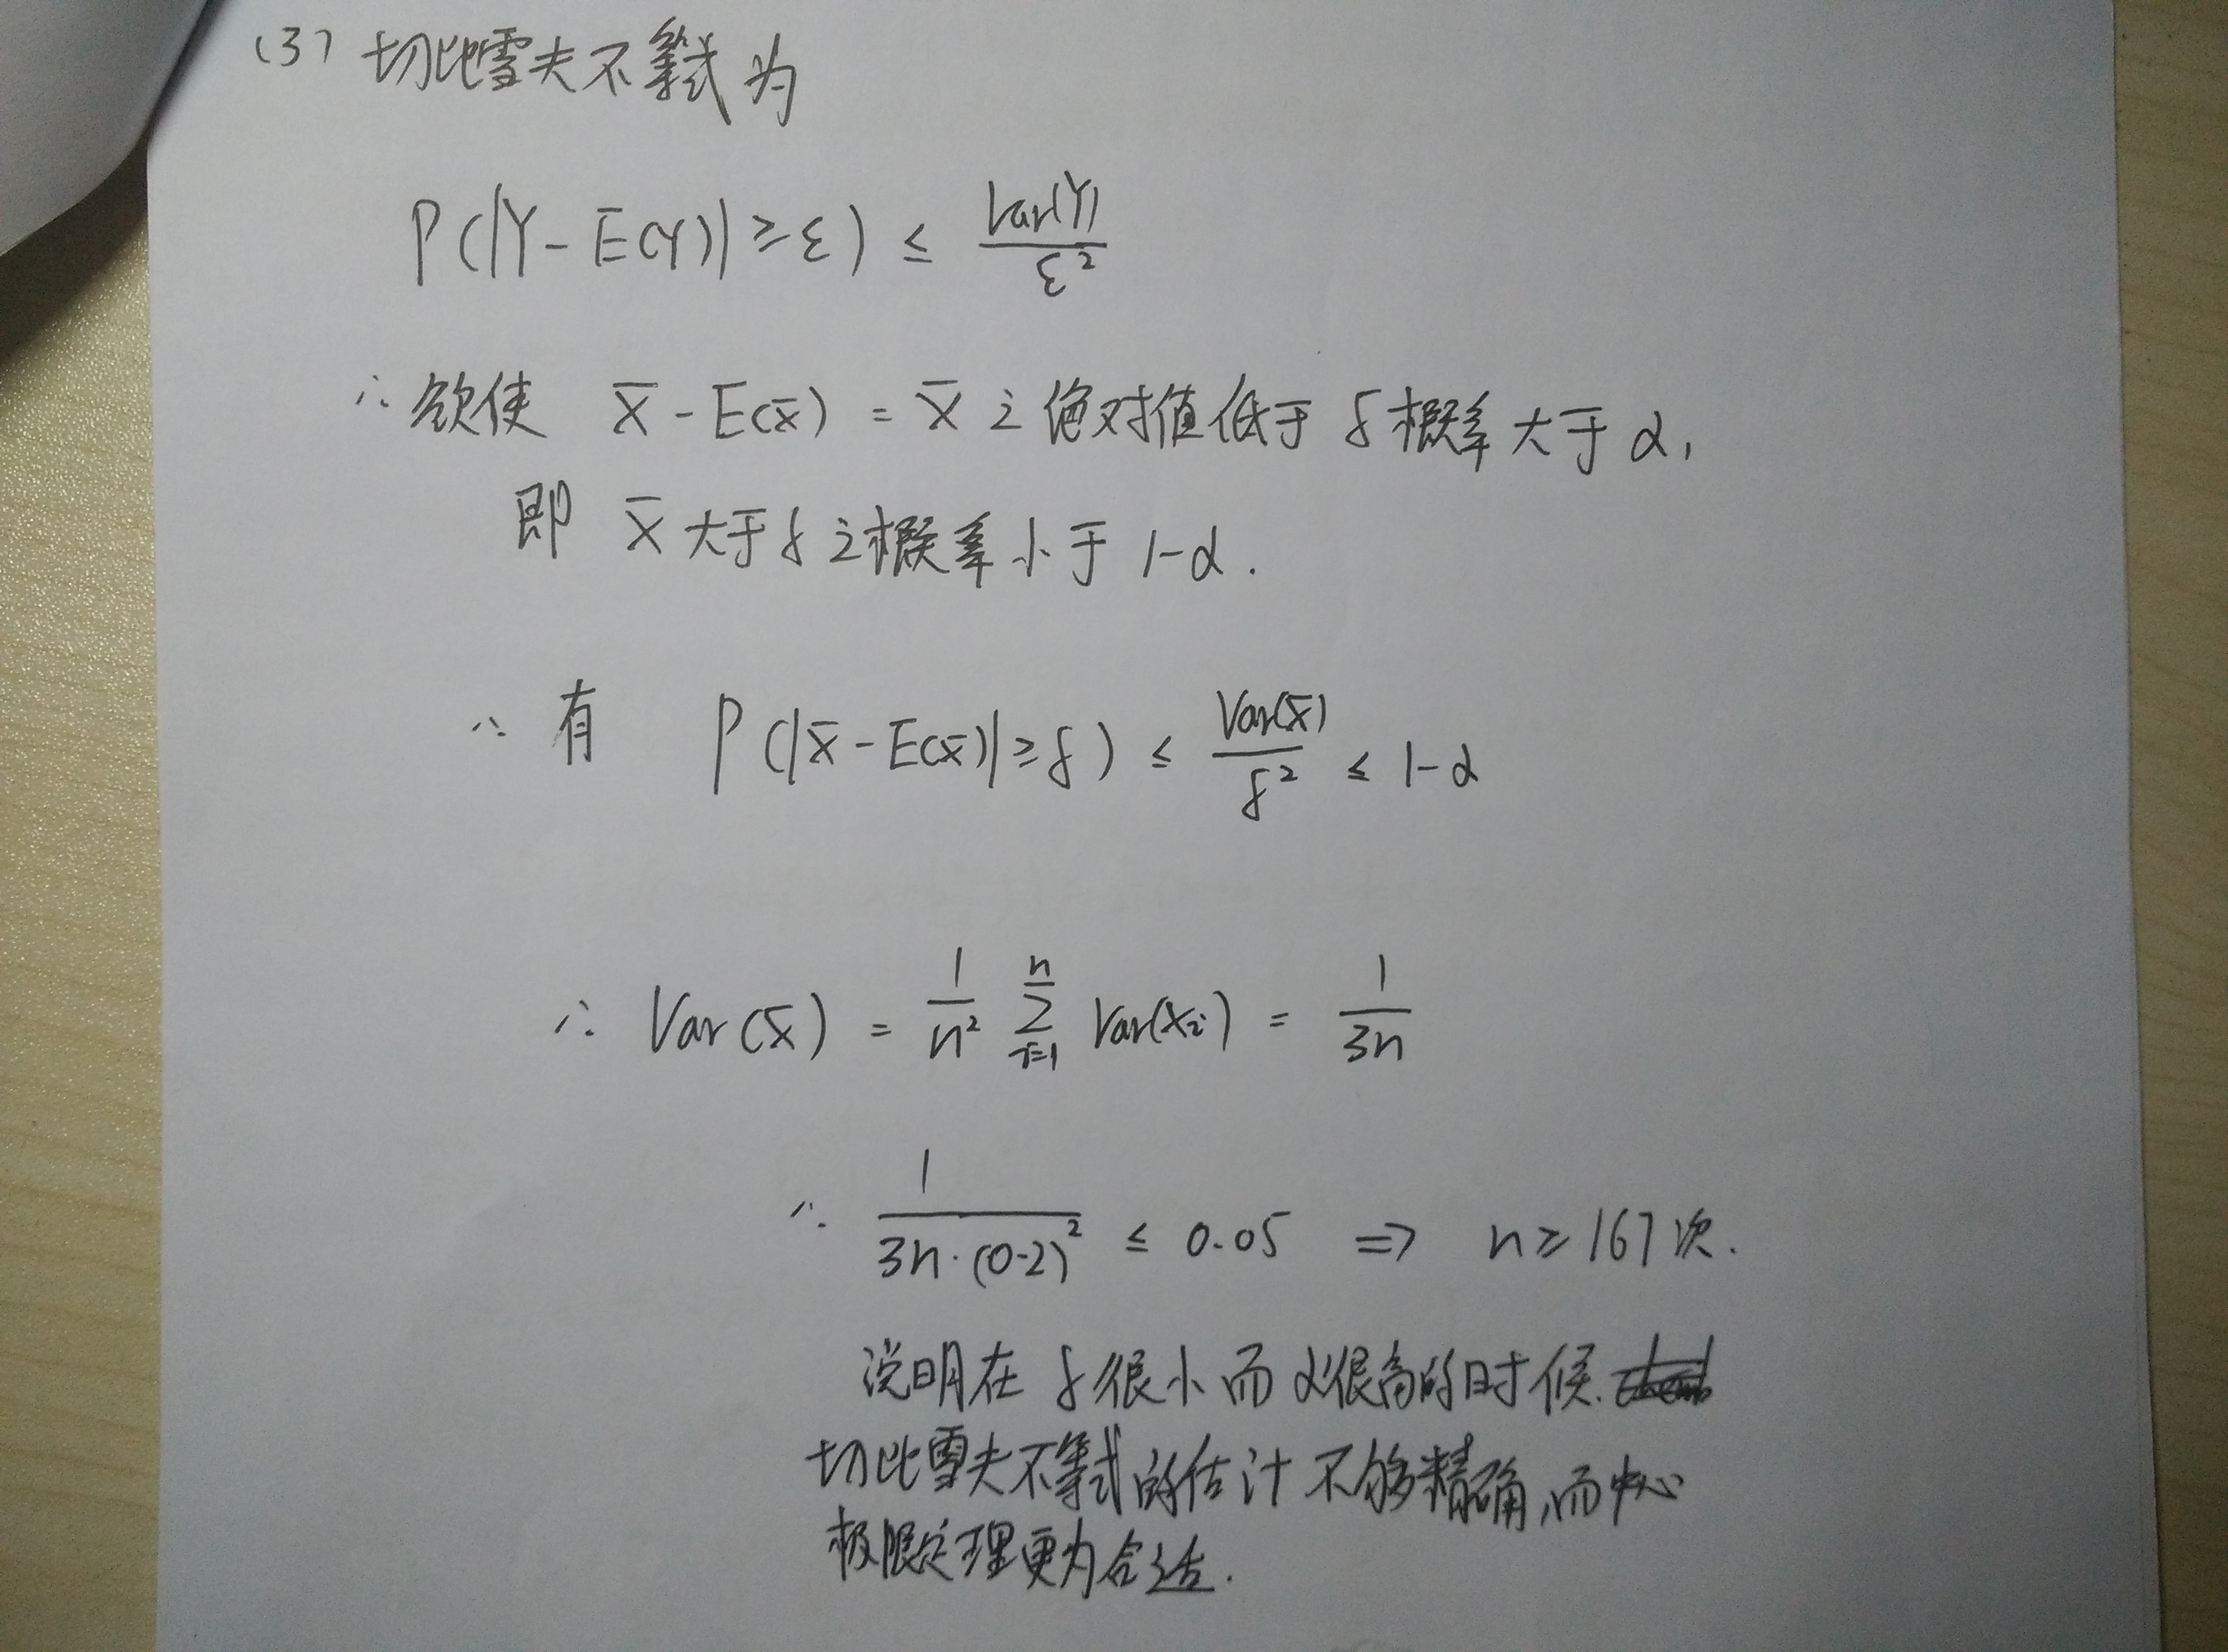 (3) 切比雪夫不等式为
P(|Y-E(Y)|≥ε) ≤ Var(Y)/ε²
∴欲使 x̄-E(x̄)=x̄之绝对值低于δ概率大于α,
即 x̄大于δ之概率小于1-α.
∴有 P(|x̄-E(x̄)|≥δ) ≤ Var(x̄)/δ² ≤ 1-α
∴ Var(x̄) = 1/n² ∑_{i=1}^{n} Var(x_i) = 1/3n
∴ 1/(3n·(0.2)²) ≤ 0.05 ⇒ n≥167次.
说明在δ很小而α很高的时候.
切比雪夫不等式的估计不够精确,而中心
极限定理更为合适.